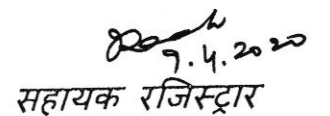 9.4.2020
सहायक रजिस्ट्रार